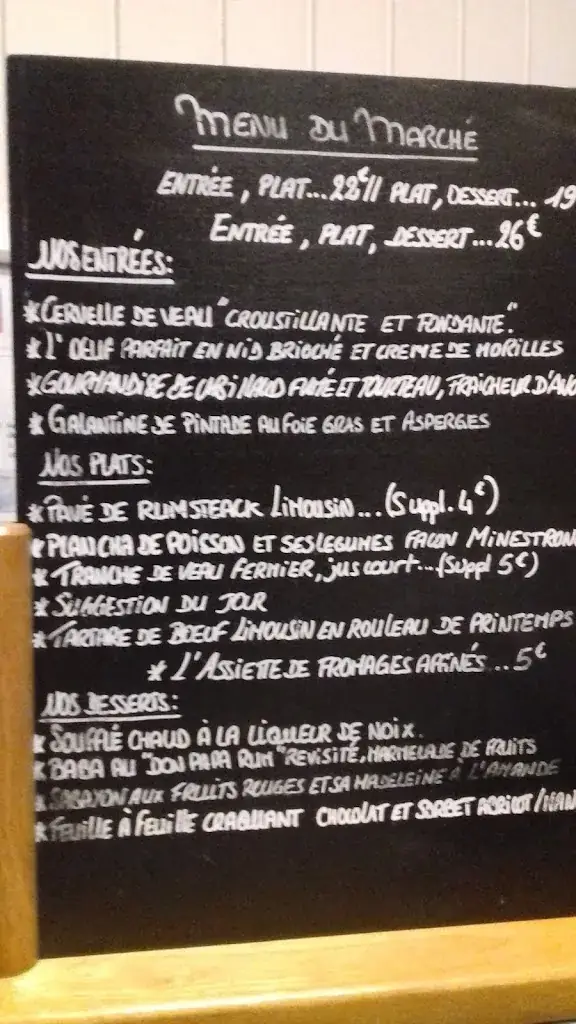 MENU DU MARCHÉ
ENTRÉE, PLAT...22€// PLAT, DESSERT... 19
ENTRÉE, PLAT, DESSERT...26€
NOS ENTRÉES:
* CERVELLE DE VEAU "CROUSTILLANTE ET FONDANTE".
* L'OEUF PARFAIT EN NID BRIOCHÉ ET CREME DE MORILLES
* GOURMANDISE DE CABILLAUD FUMÉ ET TOURTEAU, FRAICHEUR D'AVO
* GALANTINE DE PINTADE AU FOIE GRAS ET ASPERGES
NOS PLATS:
* PAVÉ DE RUMSTEACK LIMOUSIN...(Suppl. 4€)
* PLANCHA DE POISSON ET SES LEGUMES FACON MINESTRON
* TRANCHE DE VEAU FERMIER, jus court...(Suppl 5€)
* SUGGESTION DU JOUR
* TARTARE DE BOEUF LIMOUSIN EN ROULEAU DE PRINTEMPS
* L'ASSIETTE DE FROMAGES AFFINÉS...5€
NOS DESSERTS:
* SOUFFLÉ CHAUD À LA LIQUEUR DE NOIX.
* BABA AU "DON PAPA RUM" REVISITÉ, MARMELADE DE FRUITS
* SABAYON AUX FRUITS ROUGES ET SA MADELEINE À L'AMANDE
* FEUILLE À FEUILLE CRAQUANT CHOCOLAT ET SORBET ABRICOT/MAN